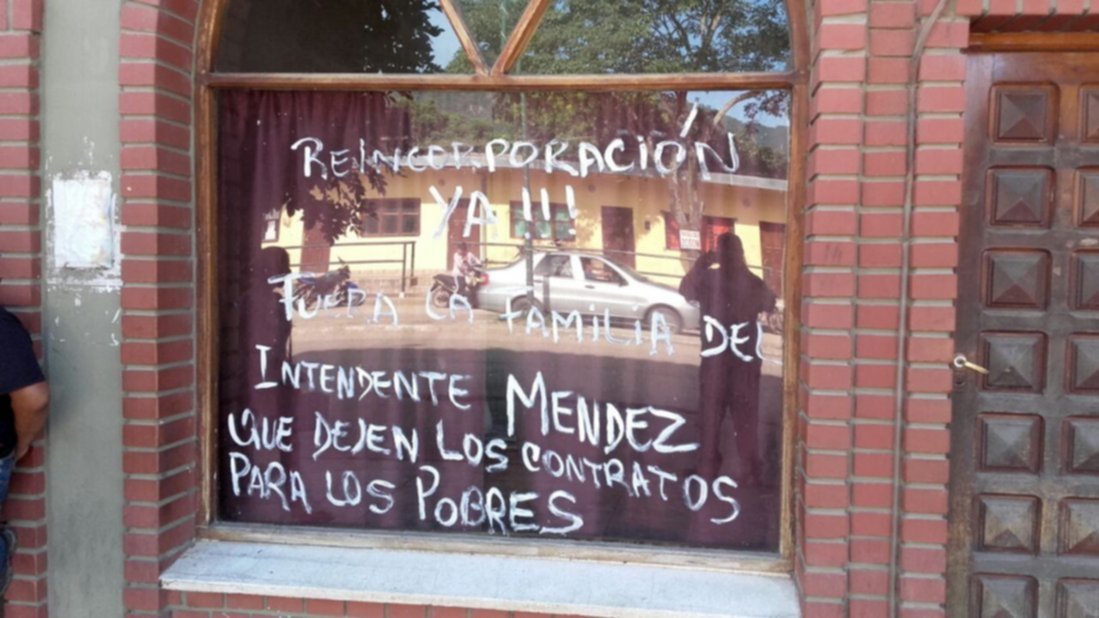 REINCORPORACIÓN
YA !!!
FUERA LA FAMILIA DEL
INTENDENTE MENDEZ
QUE DEJEN LOS CONTRATOS
PARA LOS POBRES